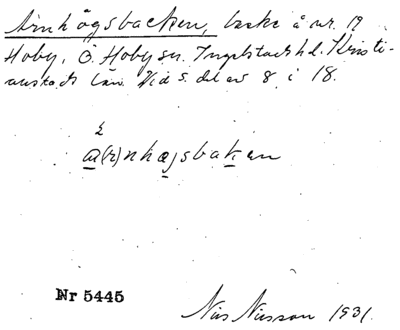 Arnhögsbacken, backe å nr. 19
Hoby, Ö. Hoby sn. Ingelstads hd. Kristi-
anstads län. Vid S. del av 8 i 18.
a(r)nhøgsbakan
Nr 5445
Nils Nilsson 1931.